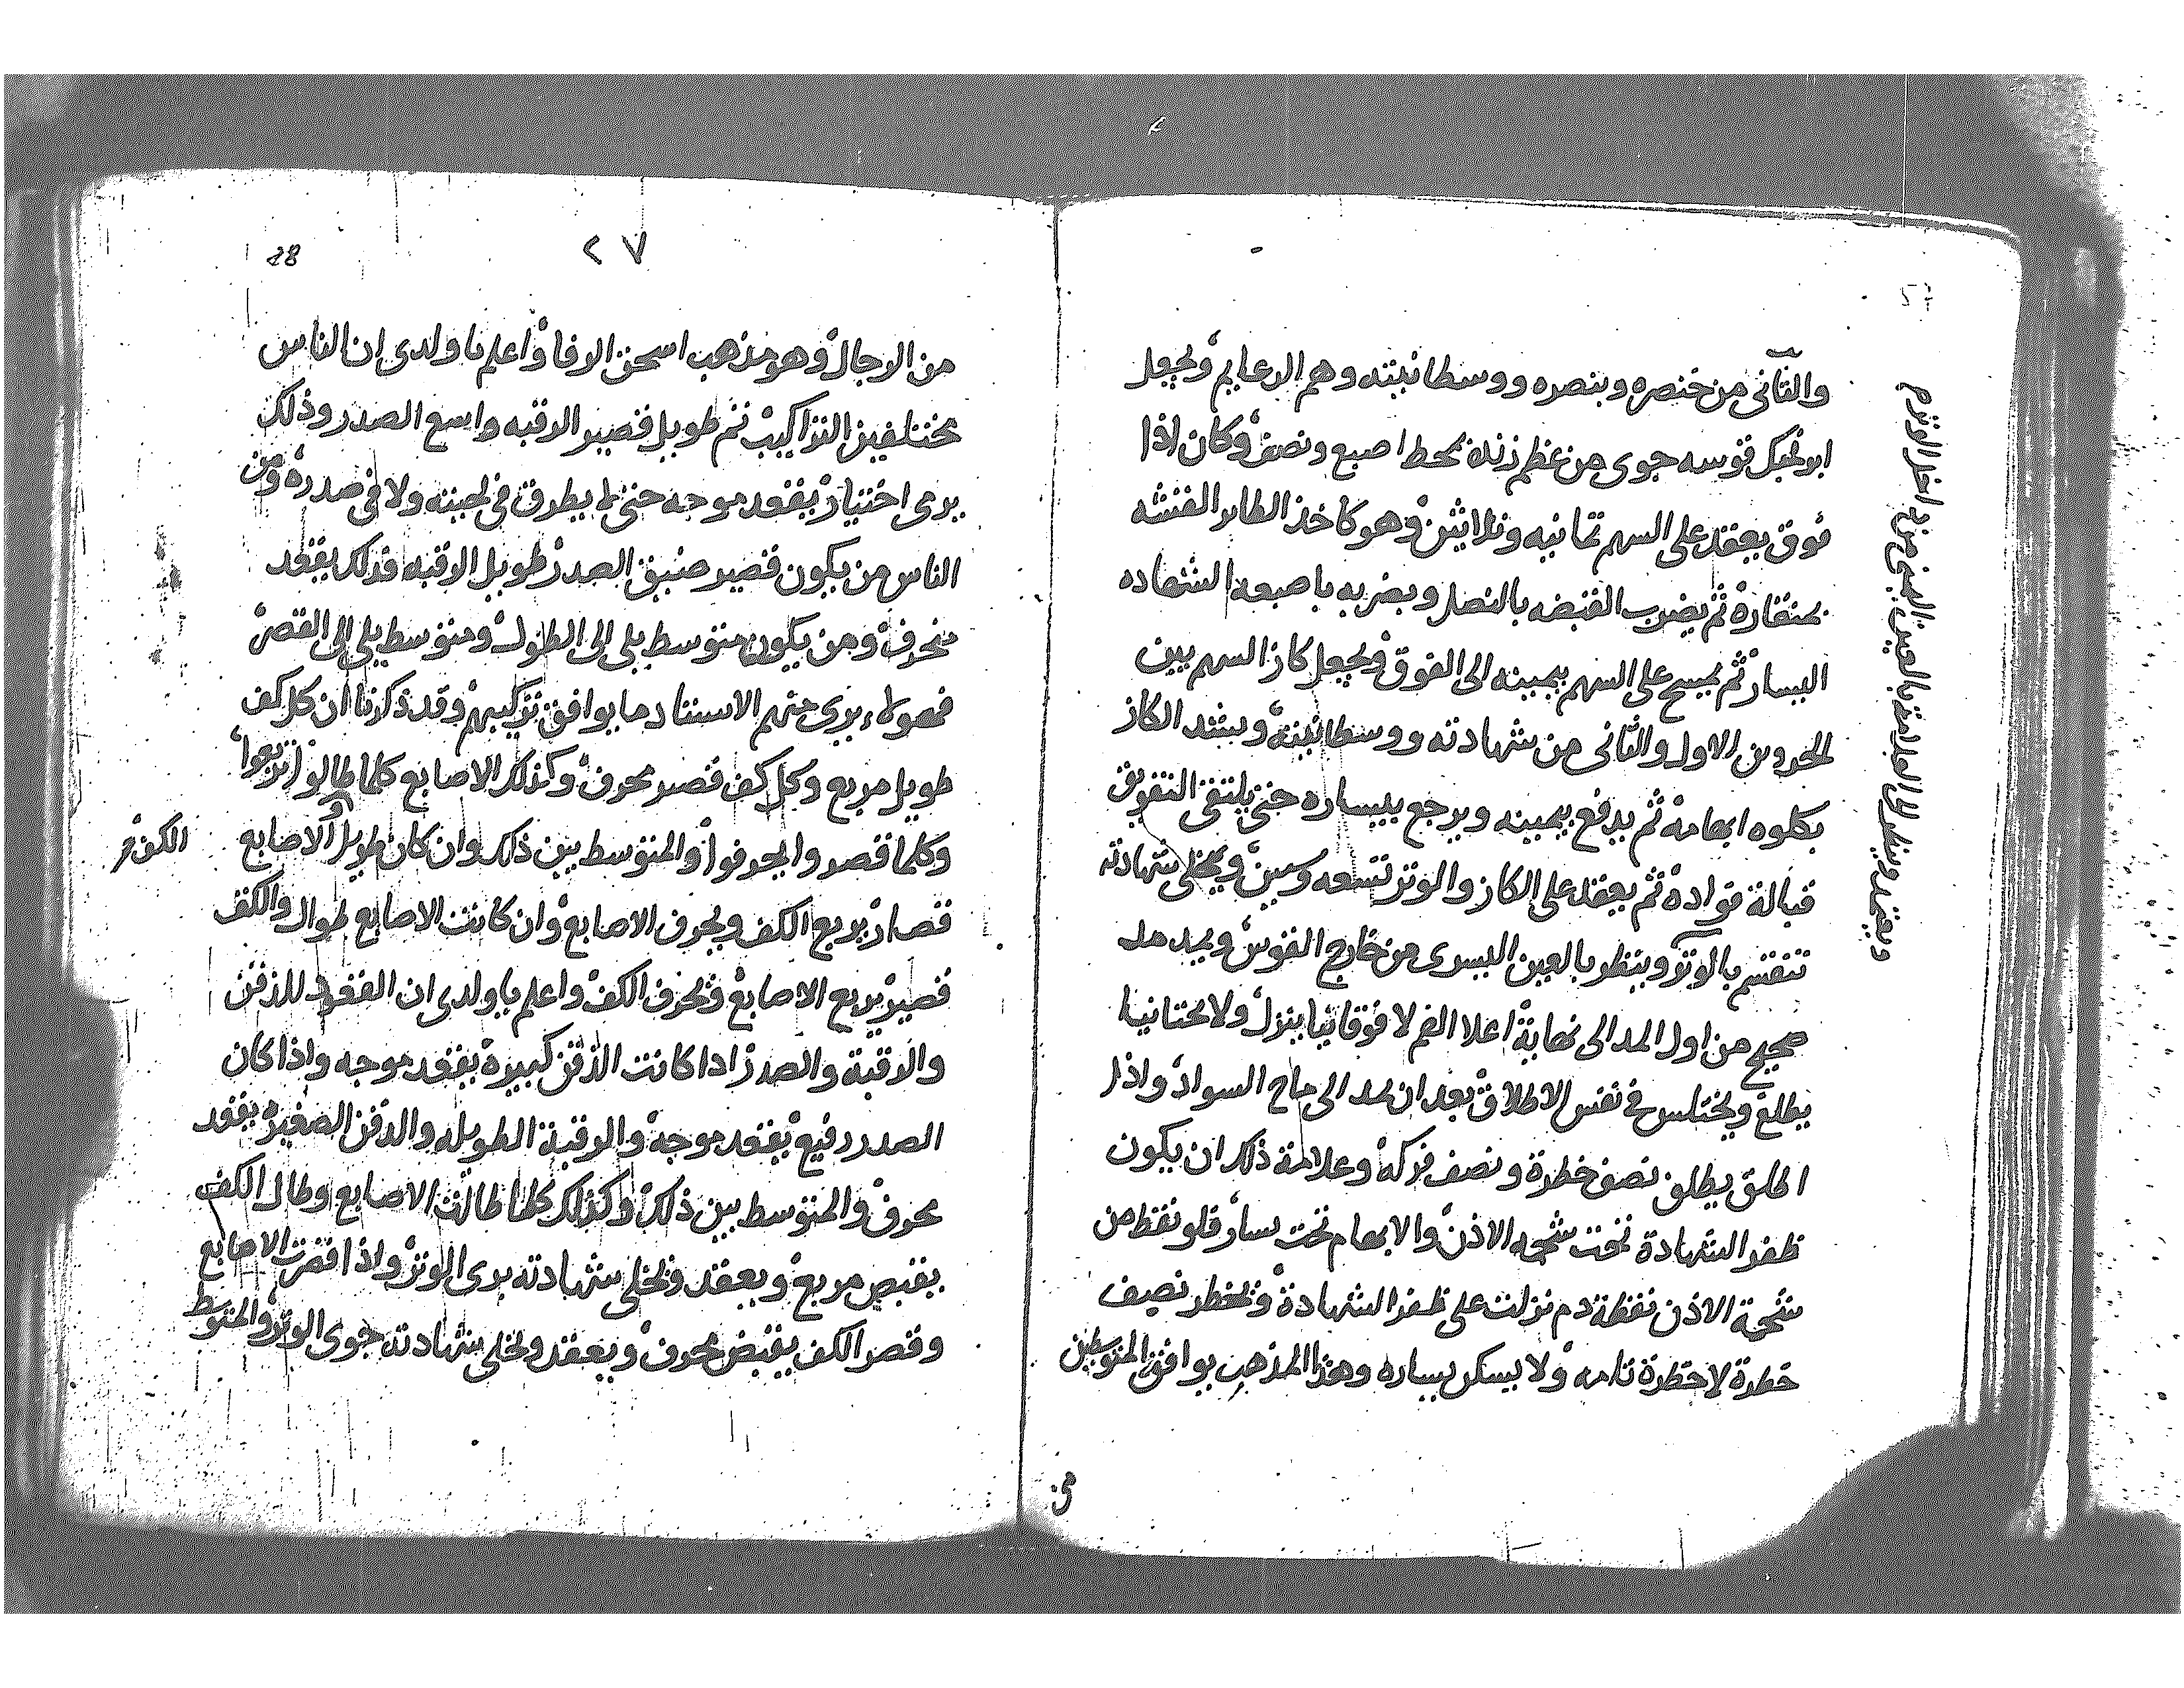 والثاني من خنصره وبنصره ووسطانيته وهم الدعايم ويجعل
ابرنجك قوسه جوى من عظم زنده بحط اصبع ونصف وكان اذا
فوق يعقد على السهم ثمانيه وثلاثين وهو كاخذ الطاير القشه
بمنقاره ثم يضرب القبضه بالنصل ويضربه باصبعه الشهاده
اليسار ثم يمسح على السهم بيمينه الى الفوق ويجعل كاز السهم بين
الحدوين الاول والثاني من شهادته ووسطانيته ويشد الكاز
بكلوه ابهامه ثم يدفع بيمينه ويرجع بيساره حتى يلتقى التفويق
قبالة فواده ثم يعقد على الكاز والوتر تسعه وستين ويخلى شهادته
تتقسم بالوتر وينظر بالعين اليسرى من خارج القوس ويمد مد
صحيح من اول المد الى نهاية اعلا الفم لا فوقانيا ينزل ولا تحتانيا
يطلع ويختلس في نفس الاطلاق بعد ان يمد الى السواد واذا
اطلق يطلق نصف خطرة ونصف فركه وعلامة ذلك ان يكون
ظفر الشهادة تحت شحمه الاذن والابهام تحت فلو نقط من
شحمة الاذن نقطة دم نزلت على ظفر الشهادة ويخطر نصيف
خطرة لا خطرة تامه ولا يسكن يساره وهذا المذهب يوافق المتوسطين
من
٢٧
28
من الرجال وهو مذهب اسحق الرفا واعلم يا ولدى ان الناس
مختلفين التراكيب ثم طويل قصير الرقبه واسع الصدر وذلك
يرمى اختيار يقعد موجه حتى لا يطرق في لحيته ولا في صدره ومن
الناس من يكون قصير ضيق الصدر طويل الرقبه فذلك يقعد
منحرف ومن يكون متوسط يلى الى الطول ومتوسط يلى الى القصر
فهولاء يرى منهم الاستاد ما يوافق تركيبهم وقد ذكرنا ان كل كف
طويل مربع وكل كف قصير محرف وكذلك الاصابع كلما طالوا تربعوا
وكلما قصروا انحرفوا والمتوسط بين ذلك وان كان طويل الاصابع
الكف
قصار يربع الكف ويحرف الاصابع وان كانت الاصابع طوال والكف
قصير يربع الاصابع ويحرف الكف واعلم يا ولدى ان القعود للذقن
والرقبة والصدر اذا كانت الذقن كبيرة يقعد موجه واذا كان
الصدر رفيع يقعد موجه والرقبة الطويله والدقن الصغيره يقعد
محرف والمتوسط بين ذلك وكذلك كلما طالت الاصابع وطال الكف
يقبض مربع ويعقد ويخلى شهادته برى الوتر واذا قصرت الاصابع
وقصر الكف يقبض محرف ويعقد ويخلى شهادته جوى الوتر والمتوسط